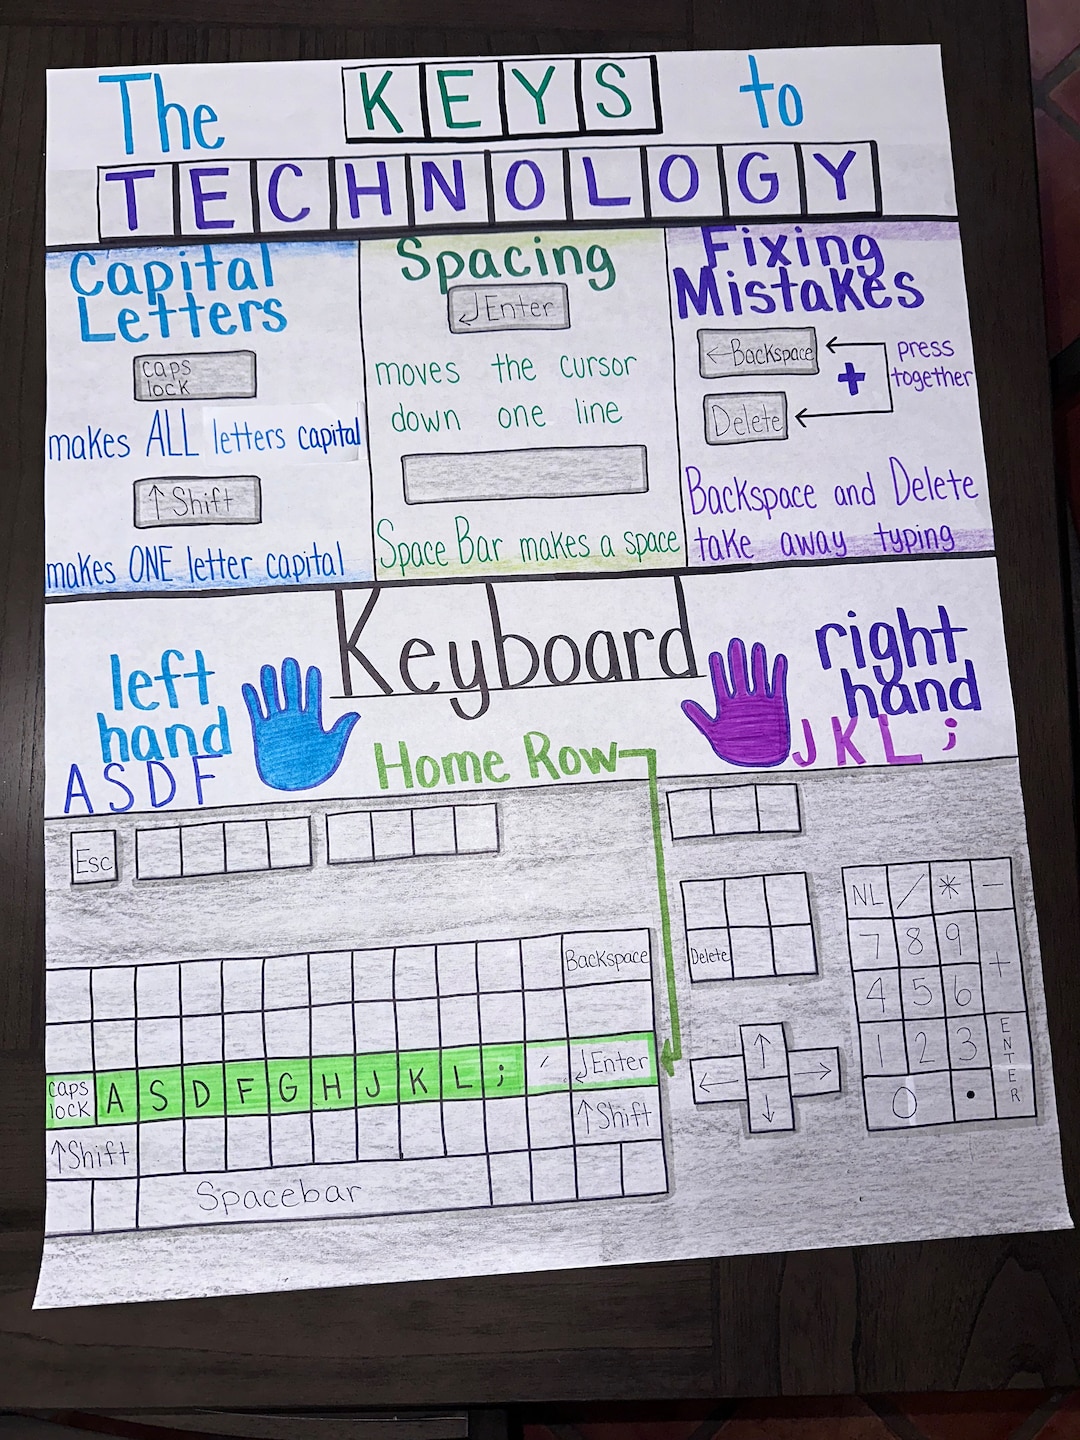 The KEYS to
TECHNOLOGY
Capital
Letters
caps
lock
makes ALL letters capital
↑ Shift
makes ONE letter capital
Spacing
↲Enter
moves the cursor
down one line
Space Bar makes a space
Fixing
Mistakes
←Backspace
+
Delete
press
together
Backspace and Delete
take away typing
Keyboard
left
hand
A S D F
right
hand
J K L ;
Home Row
Esc
Backspace
caps
lock
A S D F G H J K L ; ‘ ↲Enter
↑Shift
↑Shift
Spacebar
Delete
↑
← ↓ →
NL / * −
7 8 9 +
4 5 6
1 2 3 ENTER
0 •